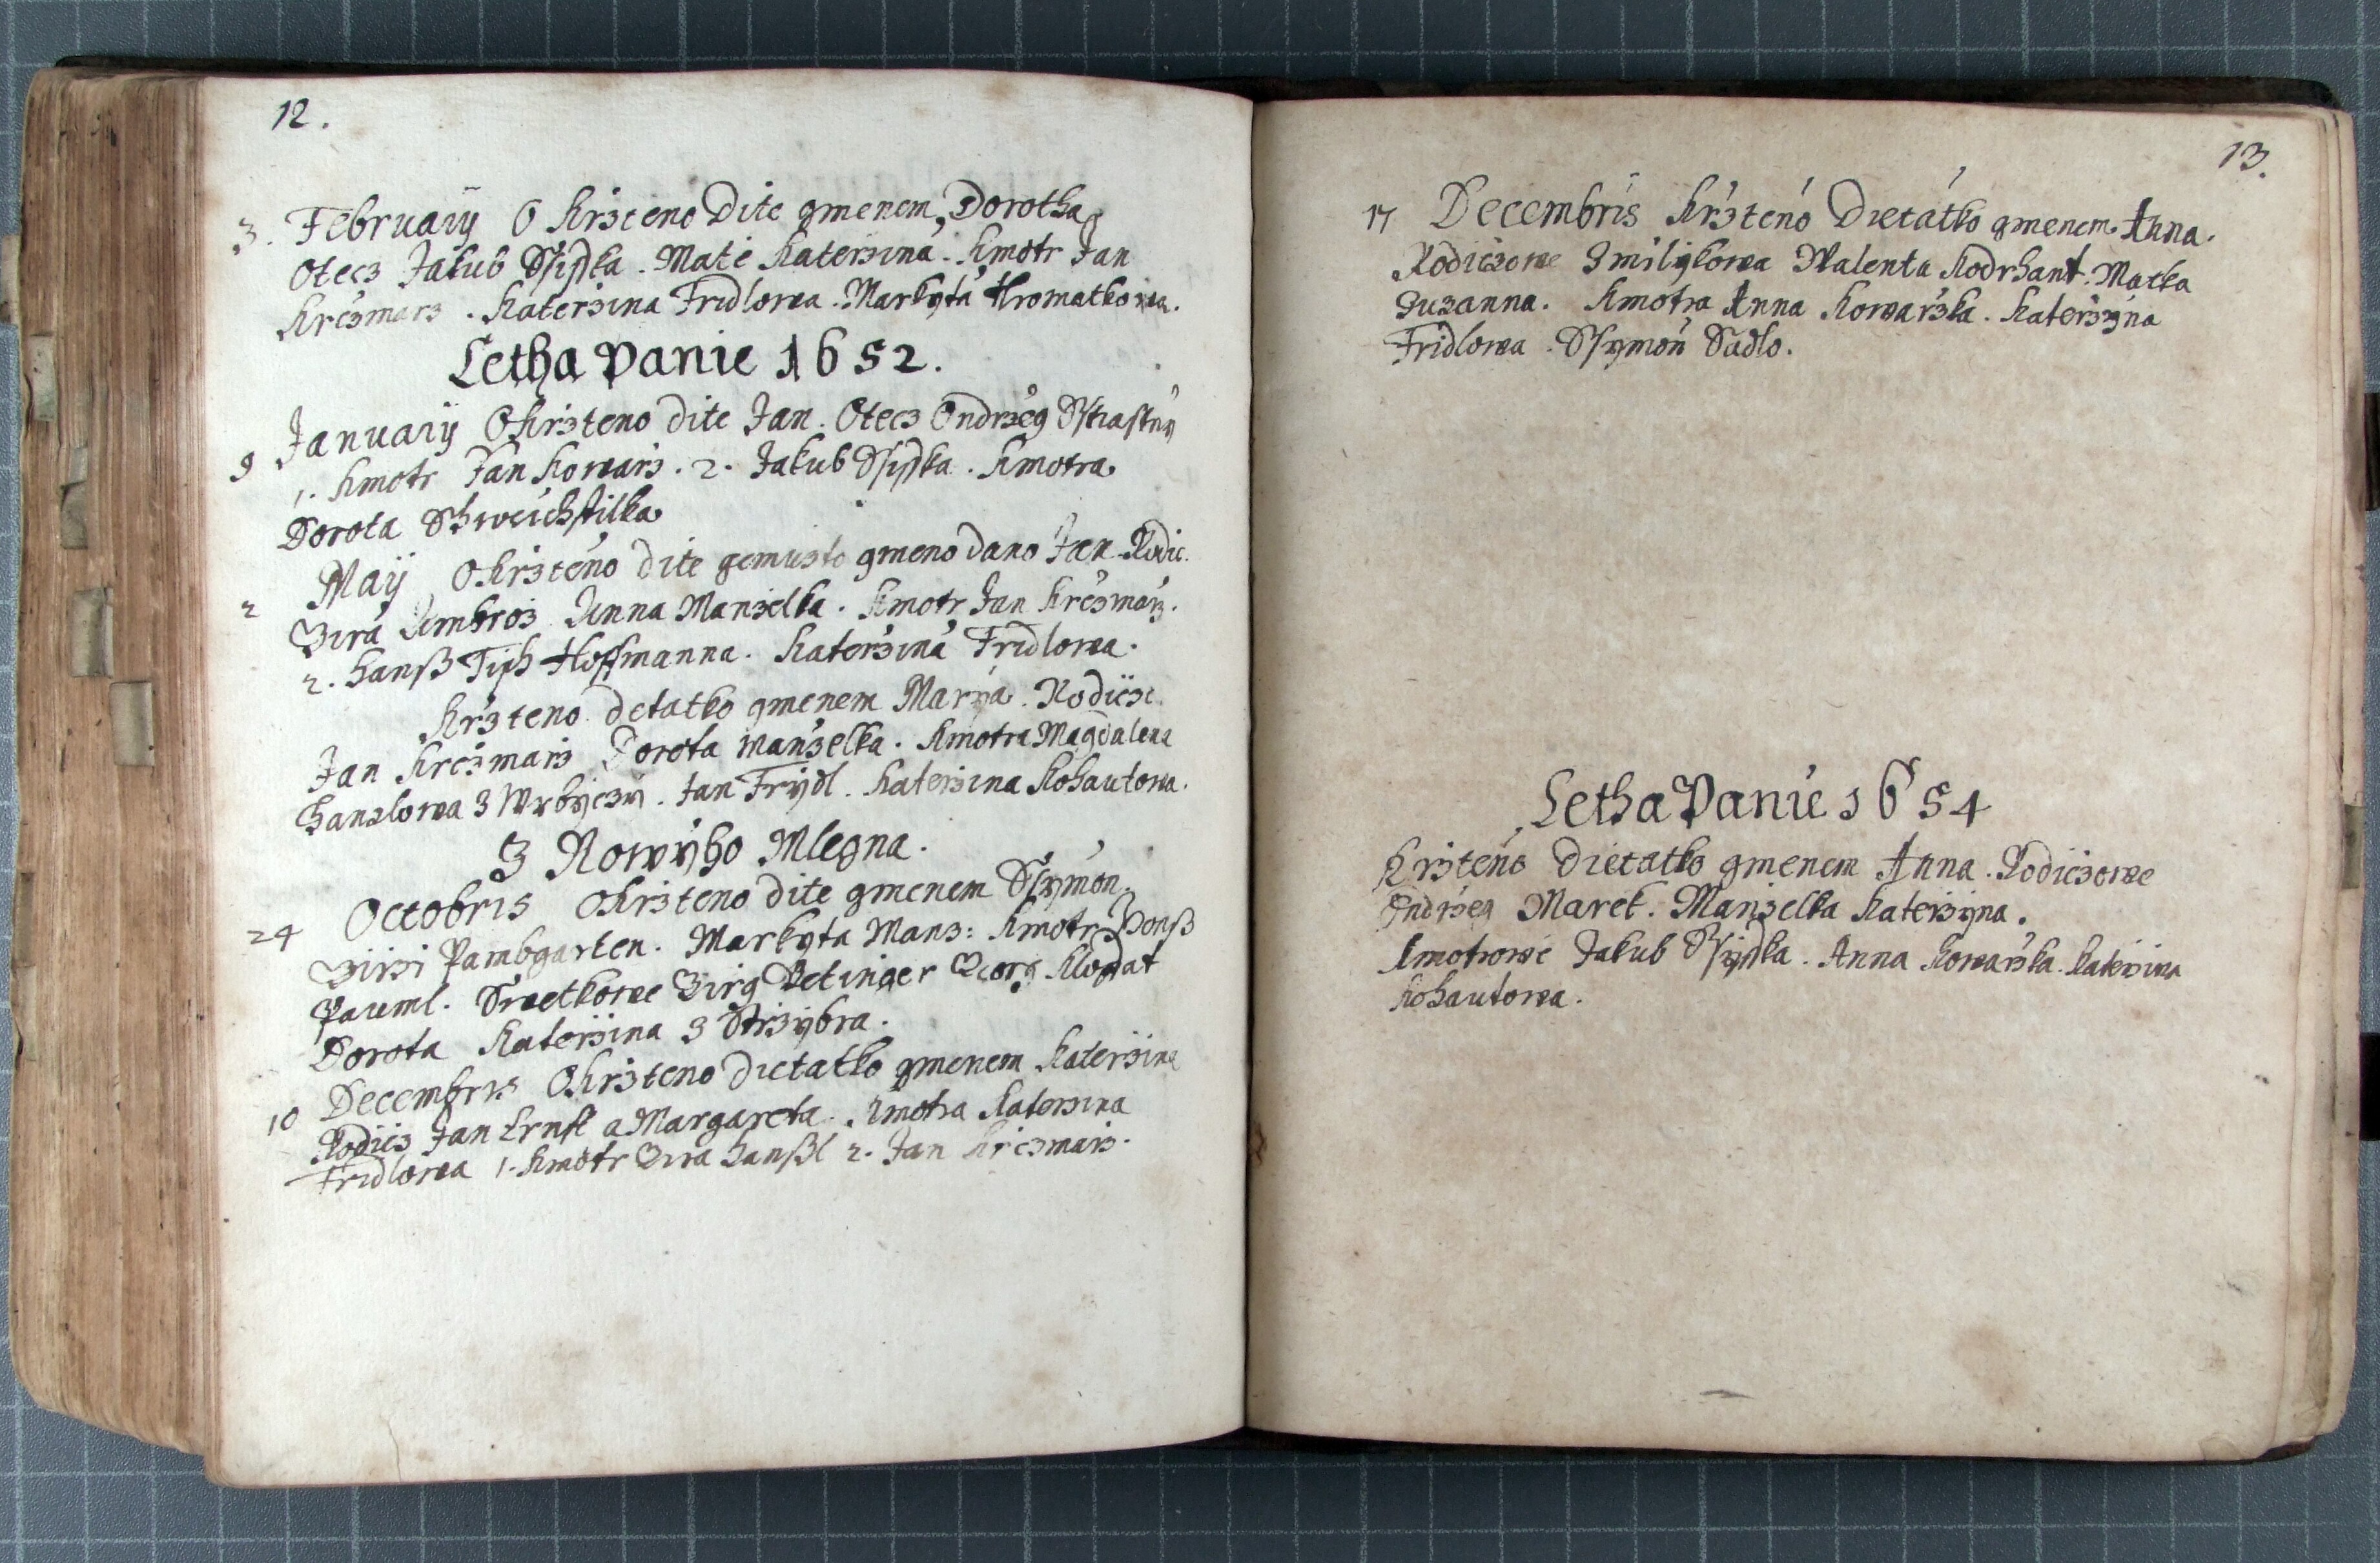 12.
3. Februarij Okrzteno Dite gmenem Dorotha
Otecz Jakub Ssysska. Mate Katerzina. Kmotr Jan
Krczmarz. Katerzina Fridlowa. Markyta Hromatkowa.
Letha Panie 1652.
Januarij Okrzteno dite Jan. Otecz Ondrzeg Sstiastny
9 1. Kmotr Jan Kowarz. 2. Jakub Ssysska. Kmotra
Dorota Schweichstilka
Maij Okrzteno dite gemužto gmeno dano Jan. Rodic.
2 Girá Ambroz Anna Manzelka. Kmotr Jan Krczmarz.
2. Hanß Hoffmanna. Katerzina Fridlowa.
Krzteno detatko gmenem Marya. Rodicze
Jan Krczmarz Dorota manzelka. Kmotra Magdalena
Hanzlowa z Wrbyczy. Jan Frydl. Katerzina Kohautowa.
Z Nowyho Mlegna.
Octobris Okrzteno dite gmenem Ssymon.
24 Girzi Pambgarten. Markyta Manz: Kmotr Honß
Pauml. Swetkowe Girg Detinger Georg
Dorota Katerzina z Strzybra.
Decembris Okrzteno dietatko gmenem Katerzina
10 Rodicz Jan Ernst a Margareta. Kmotra Katerzina
Fridlowa 1. Kmotr Gira Hanßl 2. Jan Krczmarz.
13.
17 Decembris Krzteno Dietatko gmenem Anna.
Rodiczowe Walenta Kodrhant. Matka
Zuzanna. Kmotra Anna Kowarzka. Katerzyna
Fridlowa. Ssymon Sadlo.
Letha Panie 1654
Krzteno Dietatko gmenem Anna. Rodiczowe
Ondrzeg Maret. Manzelka Katerzyna.
Kmotrowe Jakub Ssysska. Anna Kowarzka. Katerzina
Kohautowa.